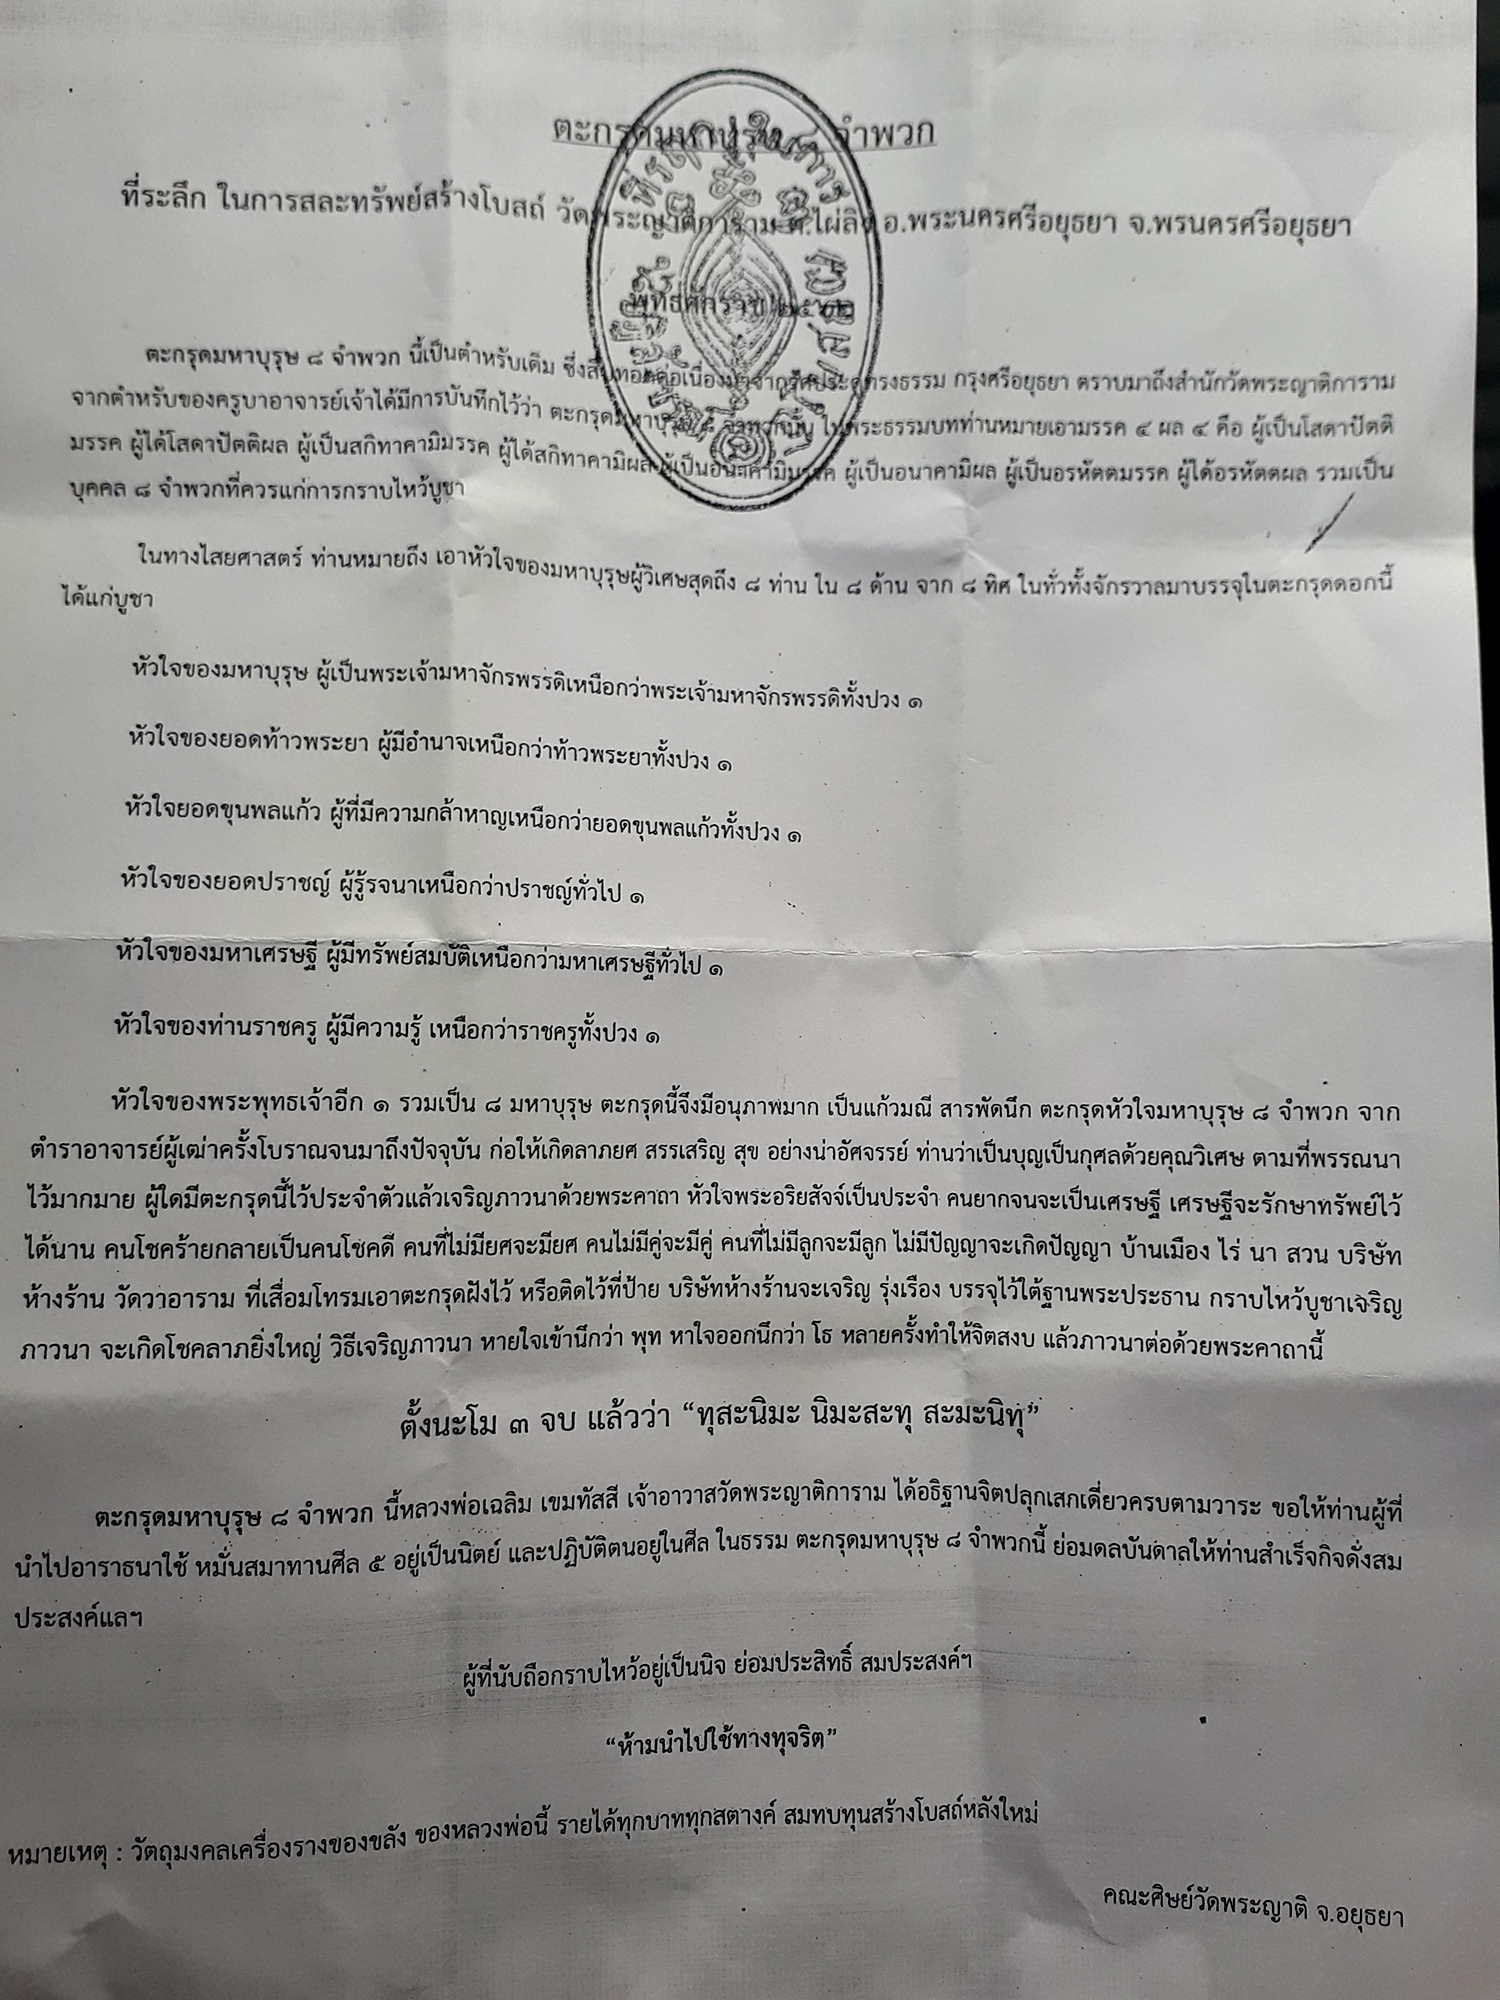 ตะกรุดมหาบุรุษ ๘ จำพวก
ที่ระลึก ในการสละทรัพย์สร้างโบสถ์ วัดพระญาติการาม ต.ไผ่ลิง อ.พระนครศรีอยุธยา จ.พรนครศรีอยุธยา
พุทธศักราช
ตะกรุดมหาบุรุษ ๘ จำพวก นี้เป็นตำหรับเดิม ซึ่งสืบทอดต่อเนื่องมาจาก กรุงศรีอยุธยา ตราบมาถึงสำนักวัดพระญาติการาม
จากตำหรับของครูบาอาจารย์เจ้าได้มีการบันทึกไว้ว่า ตะกรุดมหาบุรุษ ๘ จำพวกนั้น ในพระธรรมบทท่านหมายเอามรรค ๔ ผล ๔ คือ ผู้เป็นโสดาปัตติ
มรรค ผู้ได้โสดาปัตติผล ผู้เป็นสกิทาคามิมรรค ผู้ได้สกิทาคามิผล ผู้เป็นอนาคามิมรรค ผู้เป็นอนาคามิผล ผู้เป็นอรหัตตมรรค ผู้ได้อรหัตตผล รวมเป็น
บุคคล ๘ จำพวกที่ควรแก่การกราบไหว้บูชา
ในทางไสยศาสตร์ ท่านหมายถึง เอาหัวใจของมหาบุรุษผู้วิเศษสุดถึง ๘ ท่าน ใน ๘ ด้าน จาก ๘ ทิศ ในทั่วทั้งจักรวาลมาบรรจุในตะกรุดดอกนี้
ได้แก่บูชา
หัวใจของมหาบุรุษ ผู้เป็นพระเจ้ามหาจักรพรรดิเหนือกว่าพระเจ้ามหาจักรพรรดิทั้งปวง ๑
หัวใจของยอดท้าวพระยา ผู้มีอำนาจเหนือกว่าท้าวพระยาทั้งปวง ๑
หัวใจยอดขุนพลแก้ว ผู้ที่มีความกล้าหาญเหนือกว่ายอดขุนพลแก้วทั้งปวง ๑
หัวใจของยอดปราชญ์ ผู้รู้รจนาเหนือกว่าปราชญ์ทั่วไป ๑
หัวใจของมหาเศรษฐี ผู้มีทรัพย์สมบัติเหนือกว่ามหาเศรษฐีทั่วไป ๑
หัวใจของท่านราชครู ผู้มีความรู้ เหนือกว่าราชครูทั้งปวง ๑
หัวใจของพระพุทธเจ้าอีก ๑ รวมเป็น ๘ มหาบุรุษ ตะกรุดนี้จึงมีอนุภาพมาก เป็นแก้วมณี สารพัดนึก ตะกรุดหัวใจมหาบุรุษ ๘ จำพวก จาก
ตำราอาจารย์ผู้เฒ่าครั้งโบราณจนมาถึงปัจจุบัน ก่อให้เกิดลาภยศ สรรเสริญ สุข อย่างน่าอัศจรรย์ ท่านว่าเป็นบุญเป็นกุศลด้วยคุณวิเศษ ตามที่พรรณนา
ไว้มากมาย ผู้ใดมีตะกรุดนี้ไว้ประจำตัวแล้วเจริญภาวนาด้วยพระคาถา หัวใจพระอริยสัจจ์เป็นประจำ คนยากจนจะเป็นเศรษฐี เศรษฐีจะรักษาทรัพย์ไว้
ได้นาน คนโชคร้ายกลายเป็นคนโชคดี คนที่ไม่มียศจะมียศ คนไม่มีคู่จะมีคู่ คนที่ไม่มีลูกจะมีลูก ไม่มีปัญญาจะเกิดปัญญา บ้านเมือง ไร่ นา สวน บริษัท
ห้างร้าน วัดวาอาราม ที่เสื่อมโทรมเอาตะกรุดฝังไว้ หรือติดไว้ที่ป้าย บริษัทห้างร้านจะเจริญ รุ่งเรือง บรรจุไว้ใต้ฐานพระประธาน กราบไหว้บูชาเจริญ
ภาวนา จะเกิดโชคลาภยิ่งใหญ่ วิธีเจริญภาวนา หายใจเข้านึกว่า พุท หาใจออกนึกว่า โธ หลายครั้งทำให้จิตสงบ แล้วภาวนาต่อด้วยพระคาถานี้
ตั้งนะโม ๓ จบ แล้วว่า “ทุสะนิมะ นิมะสะทุ สะมะนิทุ”
ตะกรุดมหาบุรุษ ๘ จำพวก นี้หลวงพ่อเฉลิม เขมทัสสี เจ้าอาวาสวัดพระญาติการาม ได้อธิฐานจิตปลุกเสกเดี่ยวครบตามวาระ ขอให้ท่านผู้ที่
นำไปอาราธนาใช้ หมั่นสมาทานศีล ๕ อยู่เป็นนิตย์ และปฏิบัติตนอยู่ในศีล ในธรรม ตะกรุดมหาบุรุษ ๘ จำพวกนี้ ย่อมดลบันดาลให้ท่านสำเร็จกิจดั่งสม
ประสงค์แลฯ
ผู้ที่นับถือกราบไหว้อยู่เป็นนิจ ย่อมประสิทธิ์ สมประสงค์ฯ
“ห้ามนำไปใช้ทางทุจริต”
หมายเหตุ : วัตถุมงคลเครื่องรางของขลัง ของหลวงพ่อนี้ รายได้ทุกบาททุกสตางค์ สมทบทุนสร้างโบสถ์หลังใหม่
คณะศิษย์วัดพระญาติ จ.อยุธยา